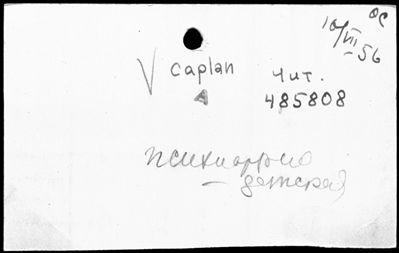 ОС
10/VII
-56
V caplan
А
Чит.
485808
психиатрия
— детская